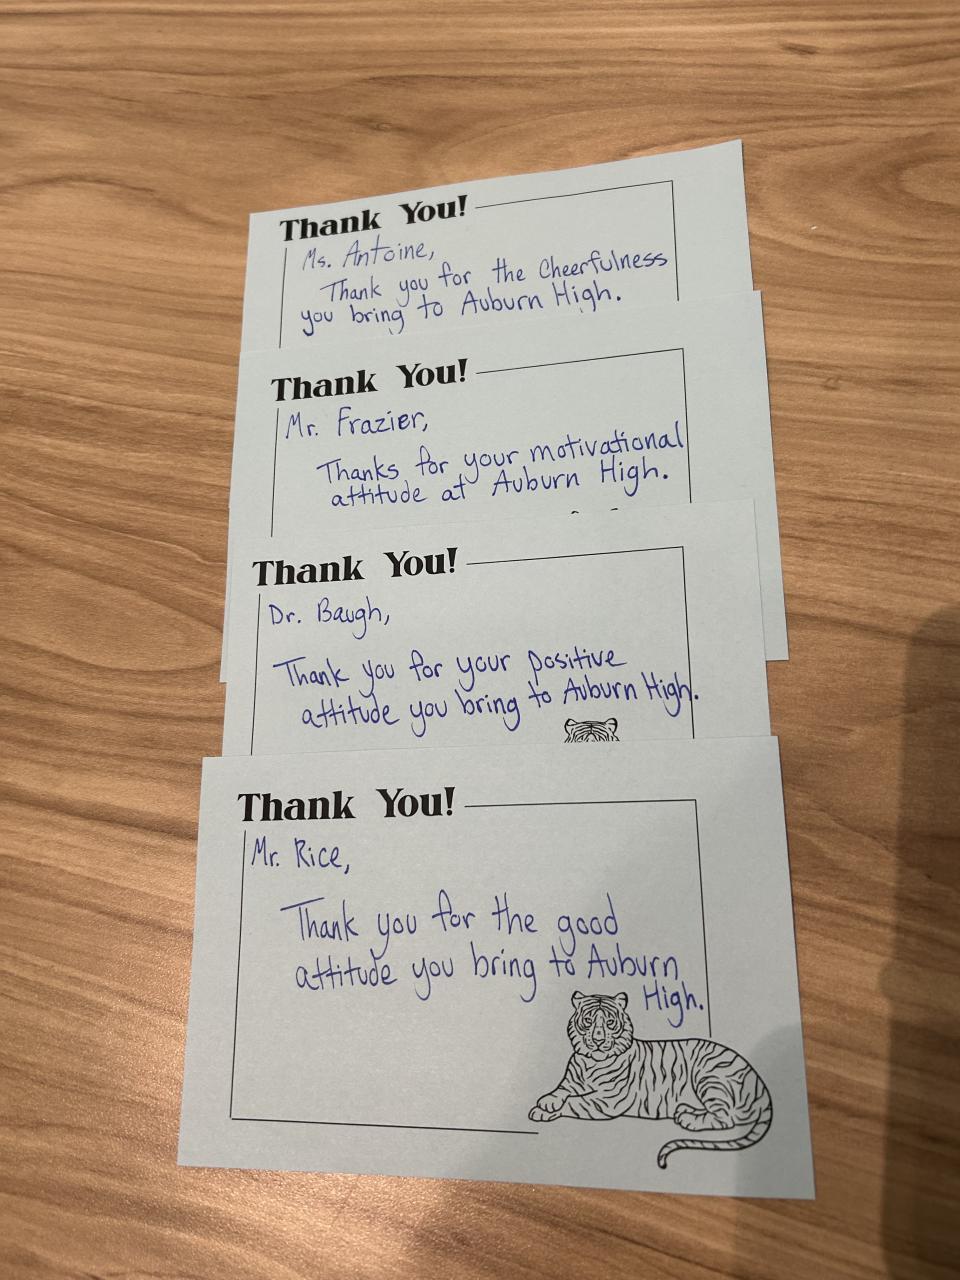 Thank You!
Ms. Antoine,
Thank you for the Cheerfulness
you bring to Auburn High.
Thank You!
Mr. Frazier,
Thanks for your motivational
attitude at Auburn High.
Thank You!
Dr. Baugh,
Thank you for your positive
attitude you bring to Auburn High.
Thank You!
Mr. Rice,
Thank you for the good
attitude you bring to Auburn
High.